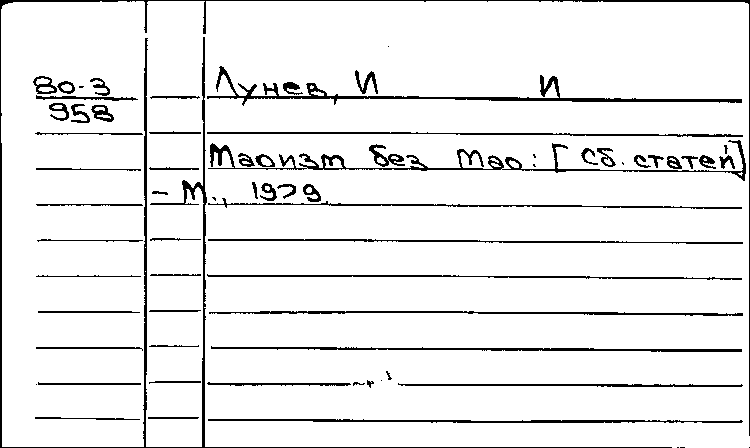 80-3
958
Лунев, И И
Маоизм без Мао: [Сб. статей]
- М., 1979.